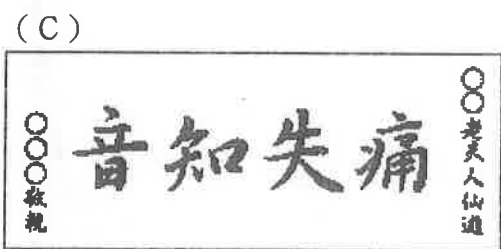 (C)
○○老夫人仙遊
痛失知音
○○○敬輓